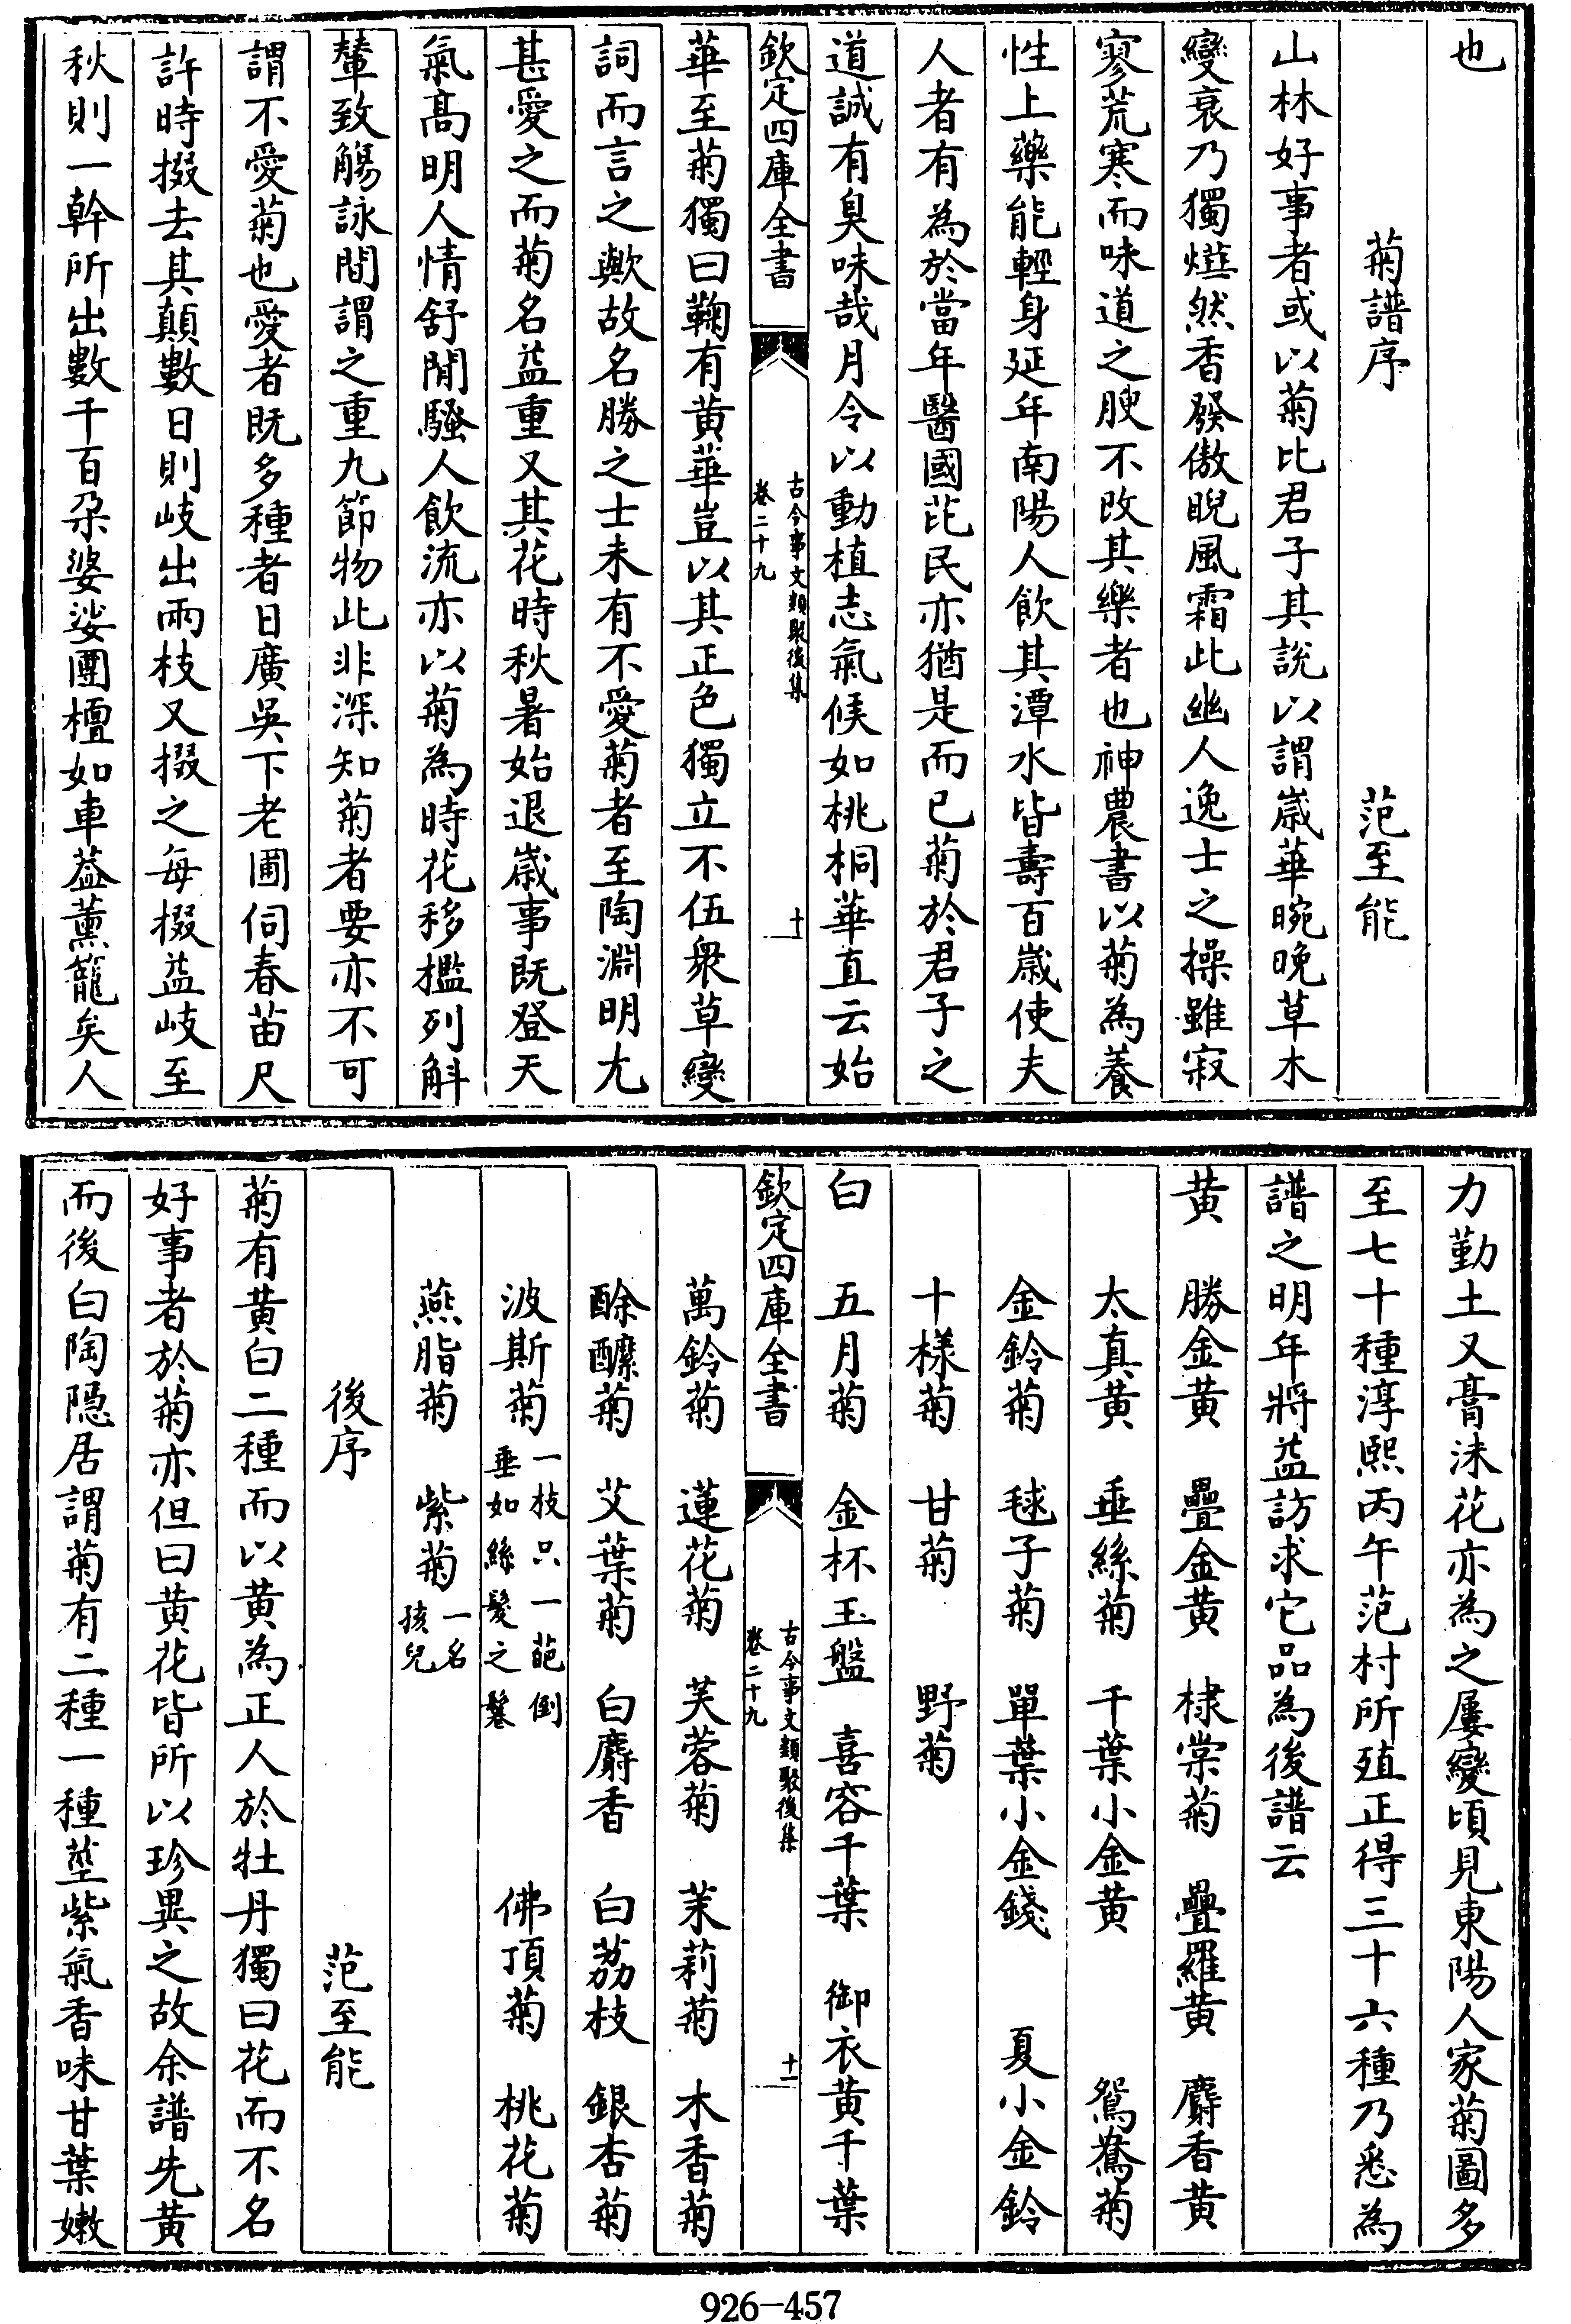 也
菊譜序 范至能
山林好事者或以菊比君子其說以謂歲華晼晚草木
變衰乃獨燁然香發傲睨風霜此幽人逸士之操雖寂
寥荒寒而味道之腴不改其樂者也神農書以菊為養
性上藥能輕身延年南陽人飲其潭水皆壽百歲使夫
人者有為於當年醫國芘民亦猶是而已菊於君子之
道誠有臭味哉月令以動植志氣候如桃桐華直云始
欽定四庫全書 古今事文類聚後集 卷二十九 十
華至菊獨曰鞠有黄華豈以其正色獨立不伍衆草變
詞而言之歟故名勝之士未有不愛菊者至陶淵明尤
甚愛之而菊名益重又其花時秋暑始退歲事既登天
氣高明人情舒閒騷人飲流亦以菊為時花移檻列斛
輦致觴詠間謂之重九節物此非深知菊者要亦不可
謂不愛菊也愛者既多種者日廣吳下老圃伺春苗尺
許時掇去其顛數日則岐出兩枝又掇之每掇益岐至
秋則一幹所出數千百朶婆娑團欒如車蓋薰籠矣人
力勤土又膏沐花亦為之屢變頃見東陽人家菊圖多
至七十種淳熙丙午范村所植正得三十六種乃悉為
譜之明年將益訪求它品為後譜云
黄 勝金黄 疊金黄 棣棠菊 疊羅黄 麝香黄
太真黄 垂絲菊 千葉小金黄 鴛鴦菊
金鈴菊 毬子菊 單葉小金錢 夏小金鈴
十樣菊 甘菊 野菊
白 五月菊 金杯玉盤 喜容千葉 御衣黄千葉
欽定四庫全書 古今事文類聚後集 卷二十九 十一
萬鈴菊 蓮花菊 芙蓉菊 茉莉菊 木香菊
酴醿菊 艾葉菊 白麝香 白荔枝 銀杏菊
波斯菊 一枝只一葩倒垂如絲髮之鬈 佛頂菊 桃花菊
燕脂菊 紫菊 一名孩兒
後序 范至能
菊有黄白二種而以黄為正人於牡丹獨曰花而不名
好事者於菊亦但曰黄花皆所以珍異之故余譜先黄
而後白陶隠居謂菊有二種一種莖紫氣香味甘葉嫩
926-457